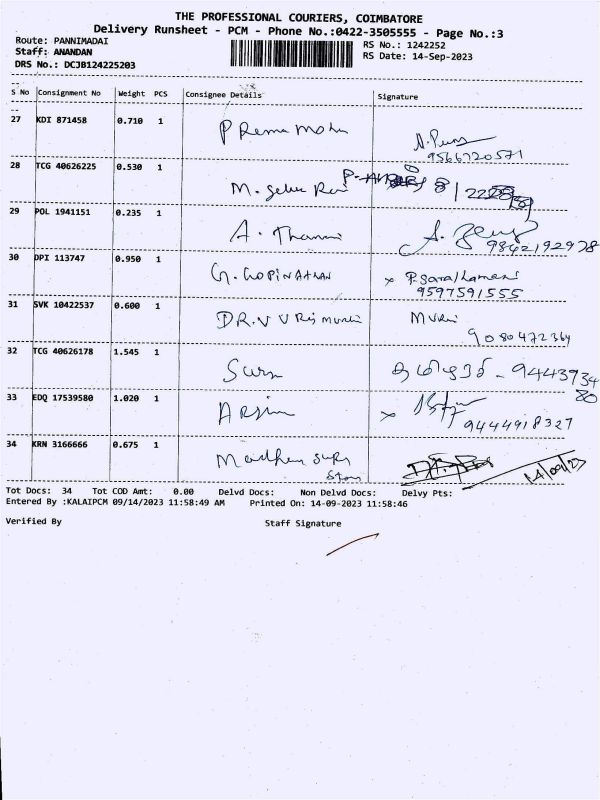 THE PROFESSIONAL COURIERS, COIMBATORE
Delivery Runsheet - PCM - Phone No.:0422-3505555 - Page No.:3
Route: PANNIMADAI
RS No.: 1242252
Staff: ANANDAN
RS Date: 14-Sep-2023
DRS No.: DCJB124225203
S No Consignment No Weight PCS Consignee Details Signature
27 KDI 871458 0.710 1 Prema Mohn
9566720571
28 TCG 40626225 0.530 1 M. Selva Rani
29 POL 1941151 0.235 1 A.
9842192978
30 DPI 113747 0.950 1 G. GOPINATHAN
9597591555
31 SVK 10422537 0.600 1 DR. V V
9080472364
32 TCG 40626178 1.545 1 தமிழரசி - 9443734
80
33 EDQ 17539580 1.020 1
9444918327
34 KRN 3166666 0.675 1 Madhu
14/09/23
Tot Docs: 34 Tot COD Amt: 0.00 Delvd Docs: Non Delvd Docs: Delvy Pts:
Entered By :KALAIPCM 09/14/2023 11:58:49 AM Printed On: 14-09-2023 11:58:46
Verified By Staff Signature